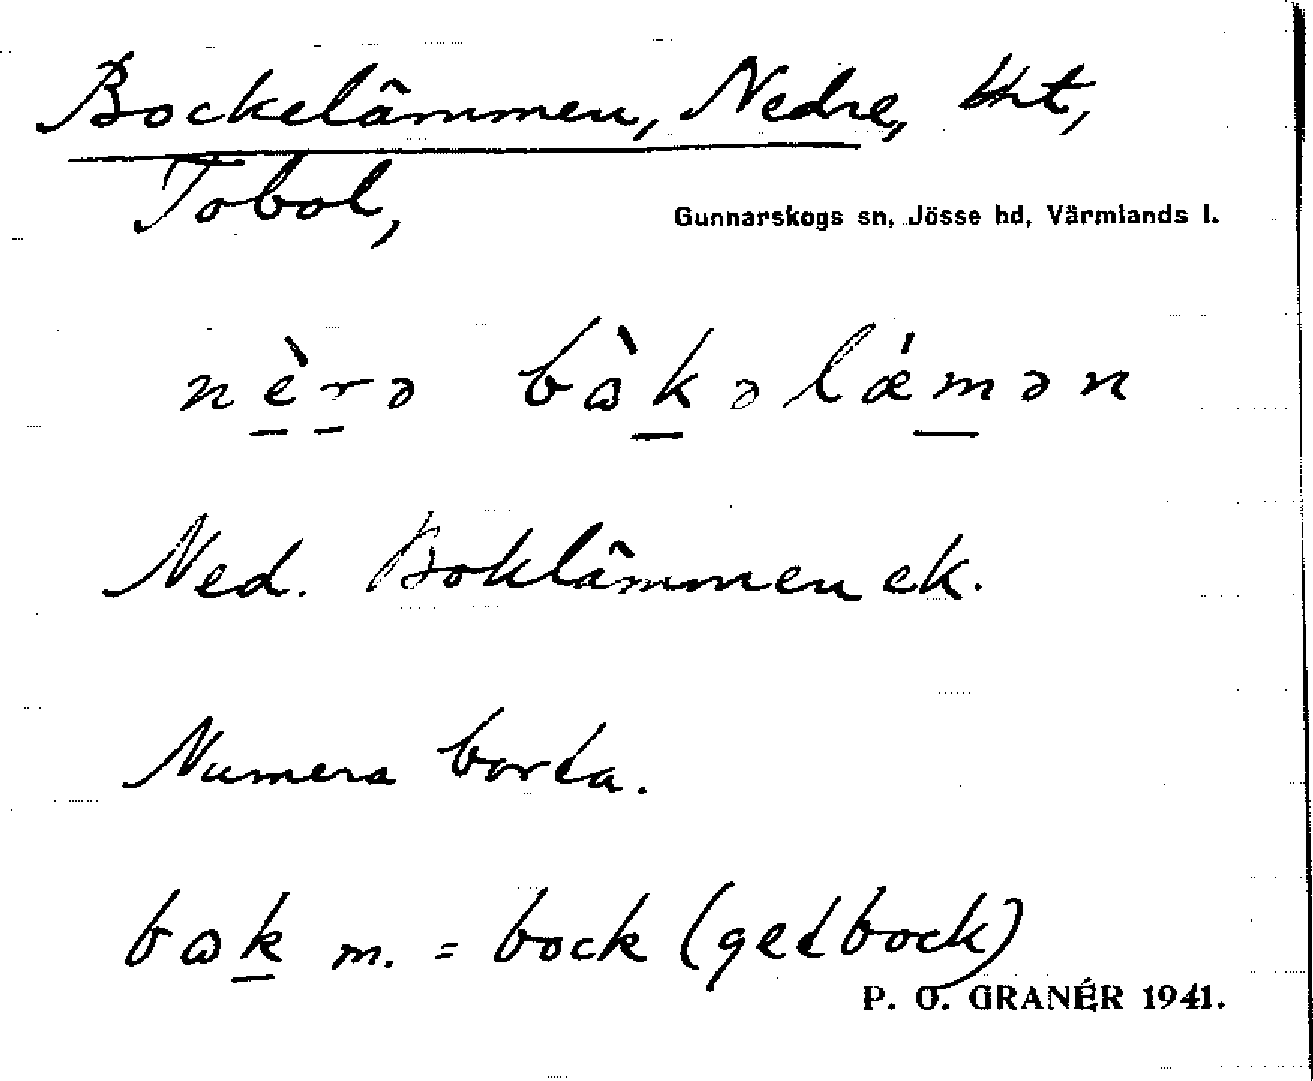 Bockelämmen, Nedre, tht,
Tobol,
Gunnarskogs sn, Jösse hd, Värmlands l.
nèrə bàkəlǽmən
Ned. Boklämmen ek.
Numera borta.
bɷk m. = bock (getbock)
P. O. GRANÉR 1941.